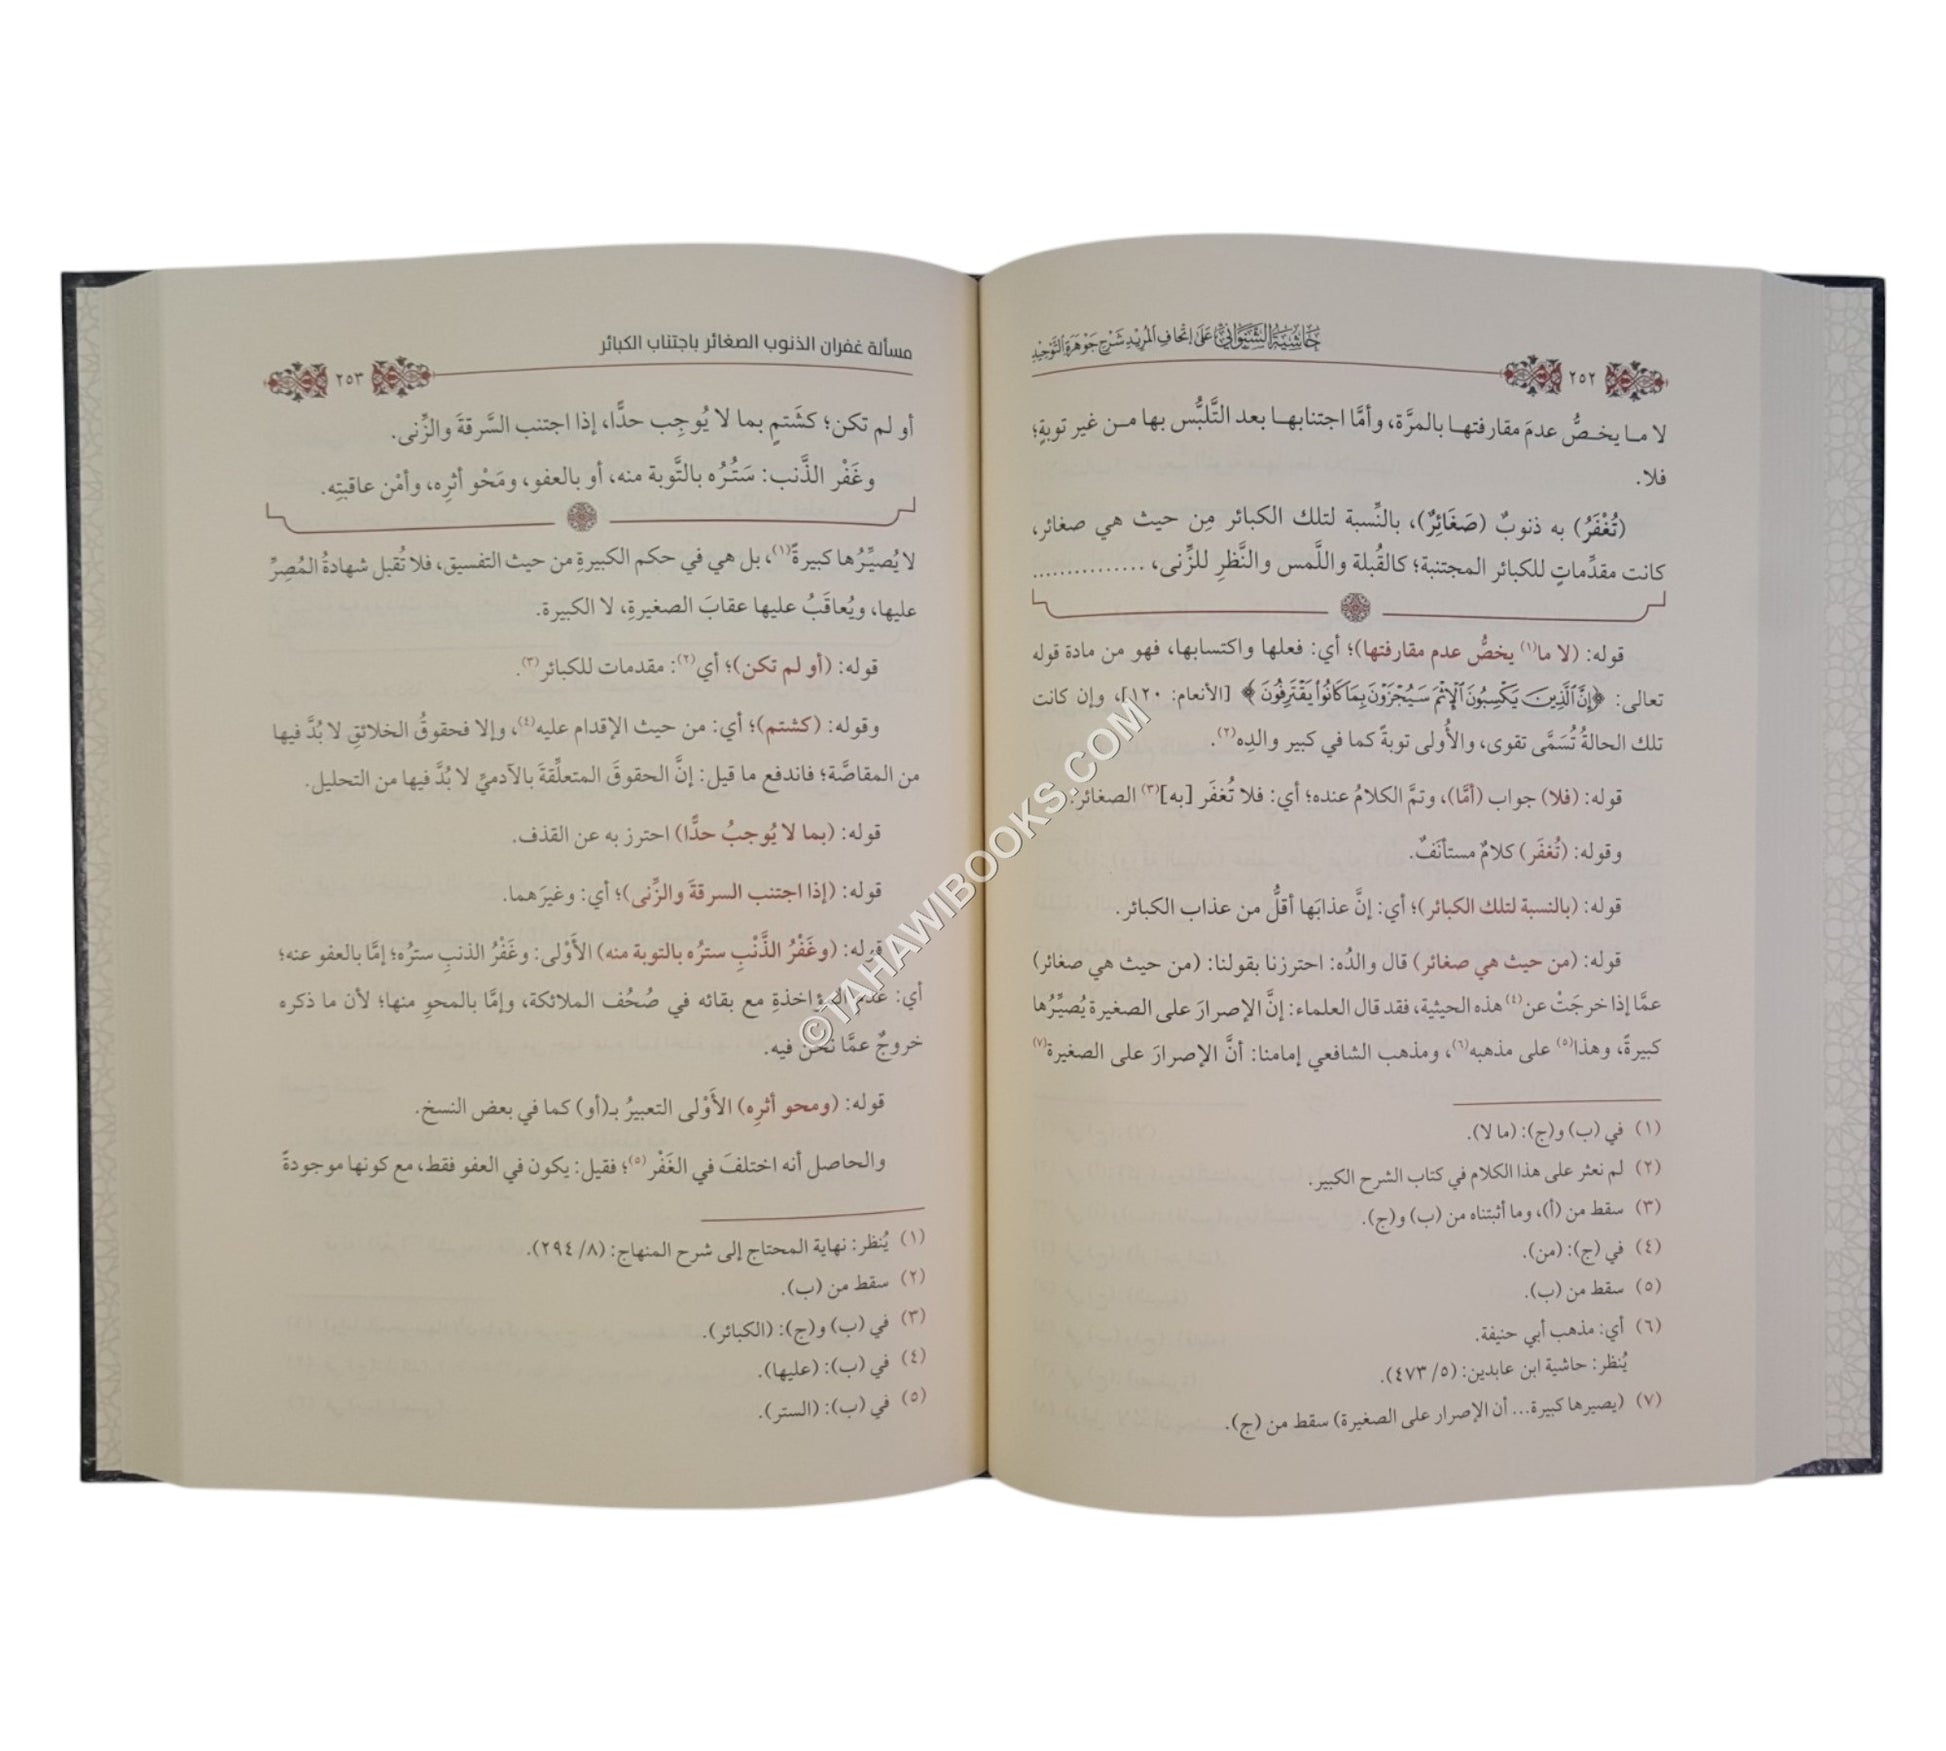 حاشية الشنواني على إتحاف المريد شرح جوهرة التوحيد
٢٥٢
لا ما يخصُّ عدمَ مقارفتها بالمرَّة، وأمَّا اجتنابها بعد التَّلبُّس بها من غير توبةٍ؛
فلا.
(تُغْفَرُ) به ذنوبٌ (صَغَائِرٌ)، بالنِّسبة لتلك الكبائر مِن حيث هي صغائر،
كانت مقدِّماتٍ للكبائر المجتنبة؛ كالقُبلة واللَّمس والنَّظرِ للزِّنى، ...............
قوله: (لا ما(١) يخصُّ عدم مقارفتها)؛ أي: فعلها واكتسابها، فهو من مادة قوله
تعالى: ﴿إِنَّ ٱلَّذِينَ يَكْسِبُونَ ٱلْإِثْمَ سَيُجْزَوْنَ بِمَا كَانُوا۟ يَقْتَرِفُونَ﴾ [الأنعام: ١٢٠]، وإن كانت
تلك الحالةُ تُسَمَّى تقوى، والأُولى توبةً كما في كبير والدِه(٢).
قوله: (فلا) جواب (أمَّا)، وتمَّ الكلامُ عنده؛ أي: فلا تُغفَر [به](٣) الصغائر.
وقوله: (تُغفَر) كلامٌ مستأنَفٌ.
قوله: (بالنسبة لتلك الكبائر)؛ أي: إنَّ عذابَها أقلُّ من عذاب الكبائر.
قوله: (من حيث هي صغائر) قال والدُه: احترزنا بقولنا: (من حيث هي صغائر)
عمَّا إذا خرجَتْ عن(٤) هذه الحيثية، فقد قال العلماء: إنَّ الإصرارَ على الصغيرة يُصيِّرُها
كبيرةً، وهذا(٥) على مذهبه(٦)، ومذهب الشافعي إمامنا: أنَّ الإصرارَ على الصغيرة(٧)
(١) في (ب) و(ج): (ما لا).
(٢) لم نعثر على هذا الكلام في كتاب الشرح الكبير.
(٣) سقط من (أ)، وما أثبتناه من (ب) و(ج).
(٤) في (ج): (من).
(٥) سقط من (ب).
(٦) أي: مذهب أبي حنيفة.
يُنظر: حاشية ابن عابدين: (٥/ ٤٧٣).
(٧) (يصيرها كبيرة... أن الإصرار على الصغيرة) سقط من (ج).
مسألة غفران الذنوب الصغائر باجتناب الكبائر
٢٥٣
أو لم تكن؛ كشَتمٍ بما لا يُوجِب حدًّا، إذا اجتنب السَّرقةَ والزِّنى.
وغَفْر الذَّنب: سَتْرُه بالتَّوبة منه، أو بالعفو، ومَحْو أثرِه، وأمْن عاقبتِه.
لا يُصيِّرُها كبيرةً(١)، بل هي في حكم الكبيرةِ من حيث التفسيق، فلا تُقبل شهادةُ المُصِرِّ
عليها، ويُعاقَبُ عليها عقابَ الصغيرةِ، لا الكبيرة.
قوله: (أو لم تكن)؛ أي(٢): مقدمات للكبائر(٣).
وقوله: (كشتم)؛ أي: من حيث الإقدام عليه(٤)، وإلا فحقوقُ الخلائقِ لا بُدَّ فيها
من المقاصَّة؛ فاندفع ما قيل: إنَّ الحقوقَ المتعلِّقةَ بالآدميِّ لا بُدَّ فيها من التحليل.
قوله: (بما لا يُوجبُ حدًّا) احترز به عن القذف.
قوله: (إذا اجتنب السرقةَ والزِّنى)؛ أي: وغيرَهما.
قوله: (وغَفْرُ الذَّنْبِ سترُه بالتوبة منه) الأَوْلى: وغَفْرُ الذنبِ سترُه؛ إمَّا بالعفو عنه؛
أي: عدم المؤاخذةِ مع بقائه في صُحُف الملائكة، وإمَّا بالمحوِ منها؛ لأن ما ذكره
خروجٌ عمَّا نحن فيه.
قوله: (ومحو أثرِه) الأَوْلى التعبيرُ بـ(أو) كما في بعض النسخ.
والحاصل أنه اختلفَ في الغَفْر(٥)؛ فقيل: يكون في العفو فقط، مع كونها موجودةً
(١) يُنظر: نهاية المحتاج إلى شرح المنهاج: (٨/ ٢٩٤).
(٢) سقط من (ب).
(٣) في (ب) و(ج): (الكبائر).
(٤) في (ب): (عليها).
(٥) في (ب): (الستر).
©TAHAWIBOOKS.COM